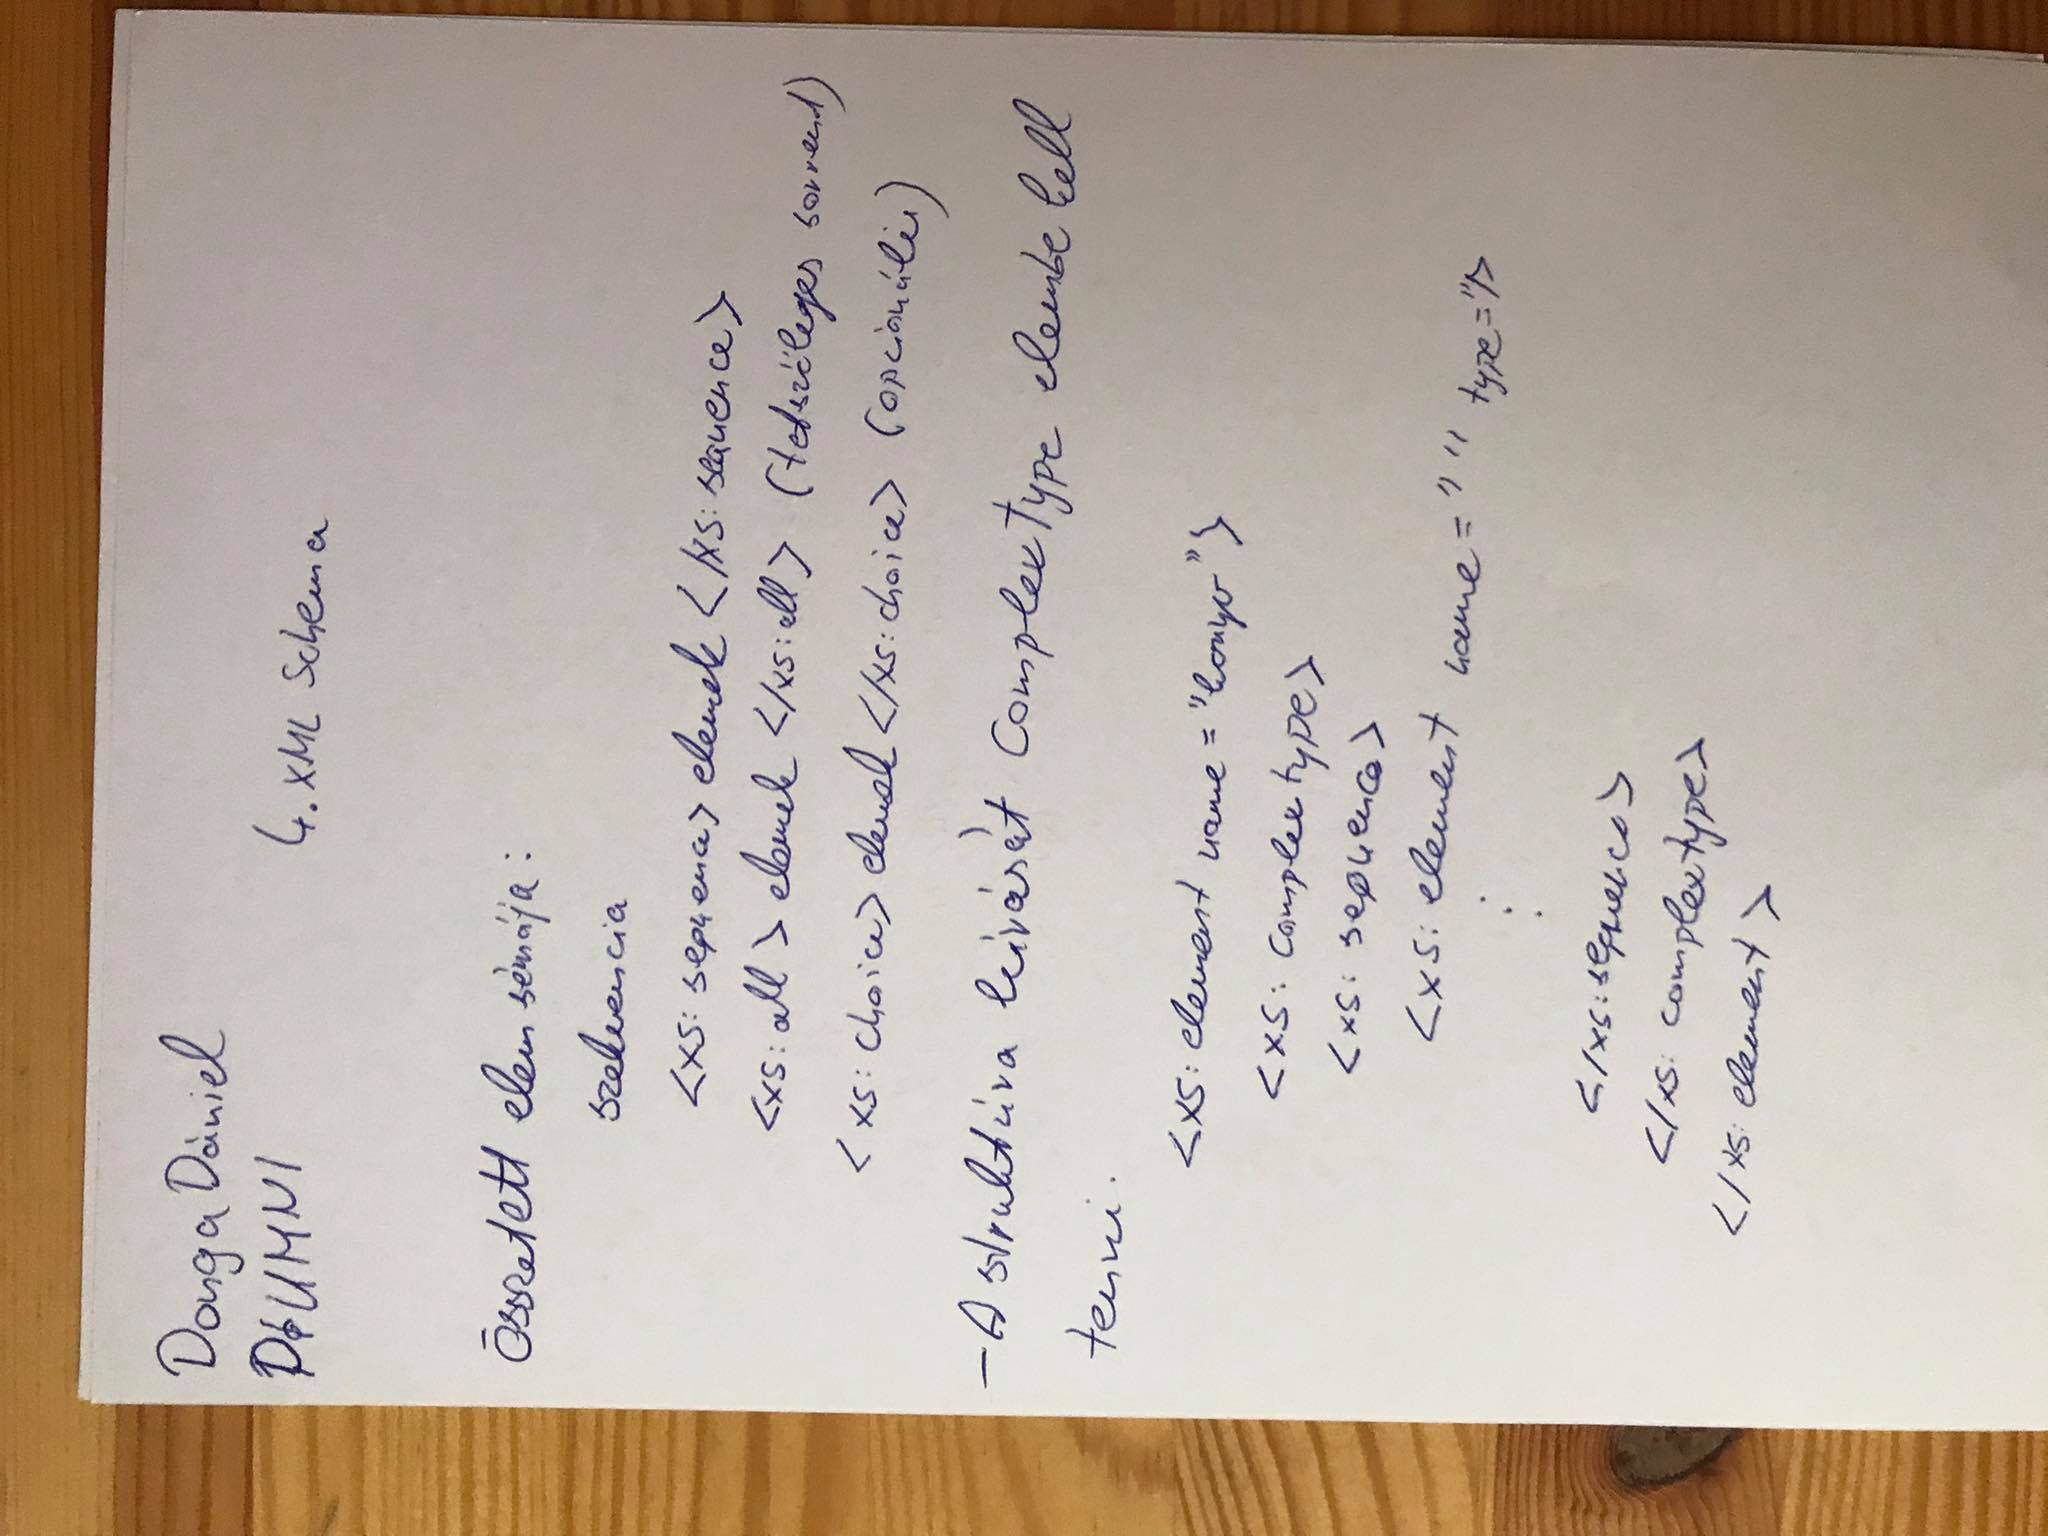 Donga Dániel
4. XML Schema
Összetett elem sémája:
szekvencia
<xs: sequence> elemek </xs: sequence>
<xs: all> elemek </xs: all> (tetszőleges sorrend)
<xs: choice> elemek </xs: choice> (opcionális)
- A struktúra leírását Complextype elembe kell
tenni.
<xs: element name = "konyv">
<xs: complextype>
<xs: sequence>
<xs: element name = " " type="/>
</xs: sequence>
</xs: complextype>
</xs: element>